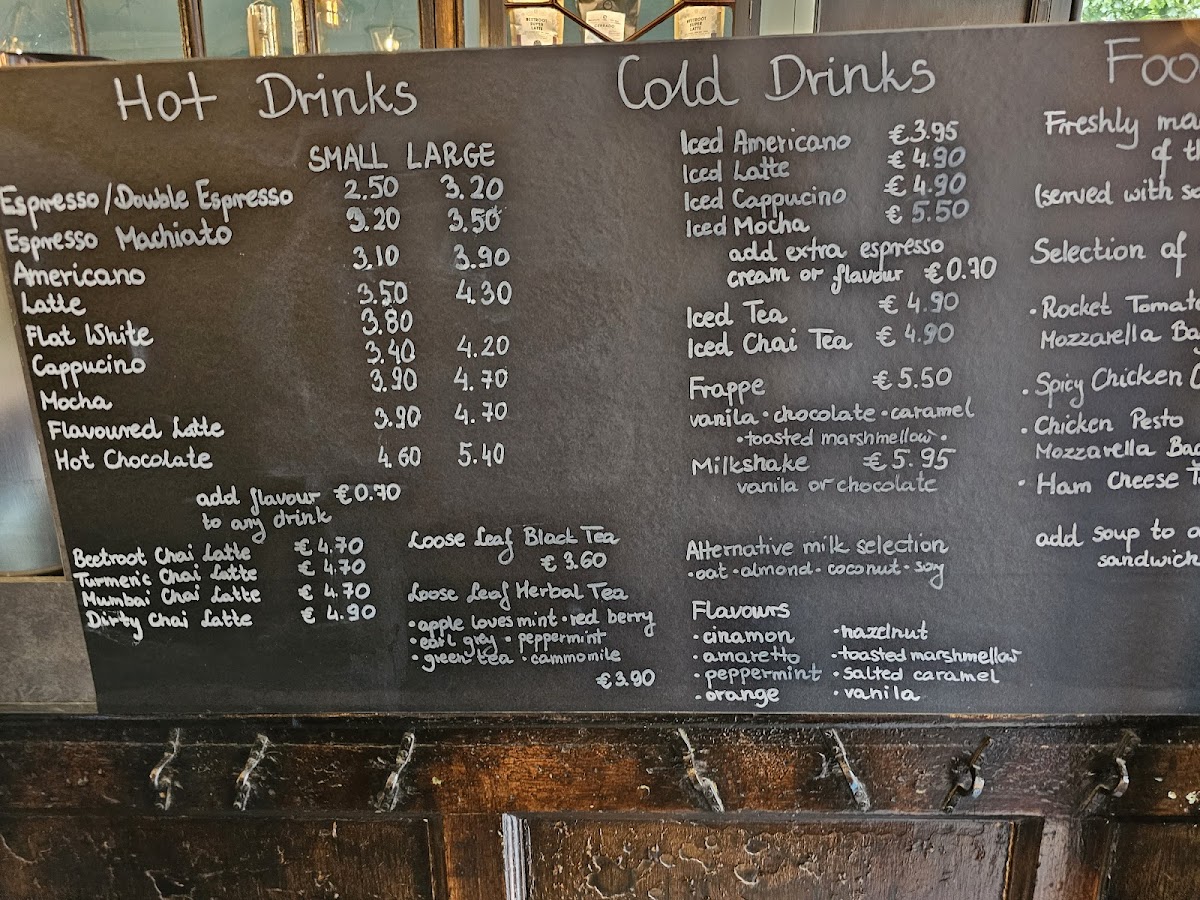 BEETROOT
SUPER
LATTE
BEETROOT
SUPER
LATTE
Hot Drinks
SMALL LARGE
Espresso/Double Espresso 2.50 3.20
Espresso Machiato 3.20 3.50
Americano 3.10 3.90
Latte 3.50 4.30
Flat White 3.80
Cappucino 3.40 4.20
Mocha 3.90 4.70
Flavoured Latte 3.90 4.70
Hot Chocolate 4.60 5.40
add flavour €0.70
to any drink
Beetroot Chai Latte €4.70
Turmeric Chai Latte €4.70
Mumbai Chai Latte €4.70
Dirty Chai Latte €4.90
Loose Leaf Black Tea
€3.60
Loose Leaf Herbal Tea
•apple loves mint •red berry
•earl grey •peppermint
•green tea •cammomile
€3.90
Cold Drinks
Iced Americano €3.95
Iced Latte €4.90
Iced Cappucino €4.90
Iced Mocha €5.50
add extra espresso
cream or flavour €0.70
Iced Tea €4.90
Iced Chai Tea €4.90
Frappe €5.50
vanila •chocolate •caramel
•toasted marshmellow•
Milkshake €5.95
vanila or chocolate
Alternative milk selection
•oat •almond •coconut •soy
Flavours
•cinamon •hazelnut
•amaretto •toasted marshmellow
•peppermint •salted caramel
•orange •vanila
Foo
Freshly ma
of th
(served with sa
Selection of
•Rocket Tomato
Mozzarella Ba
•Spicy Chicken
•Chicken Pesto
Mozzarella Ba
•Ham Cheese T
add soup to a
sandwich